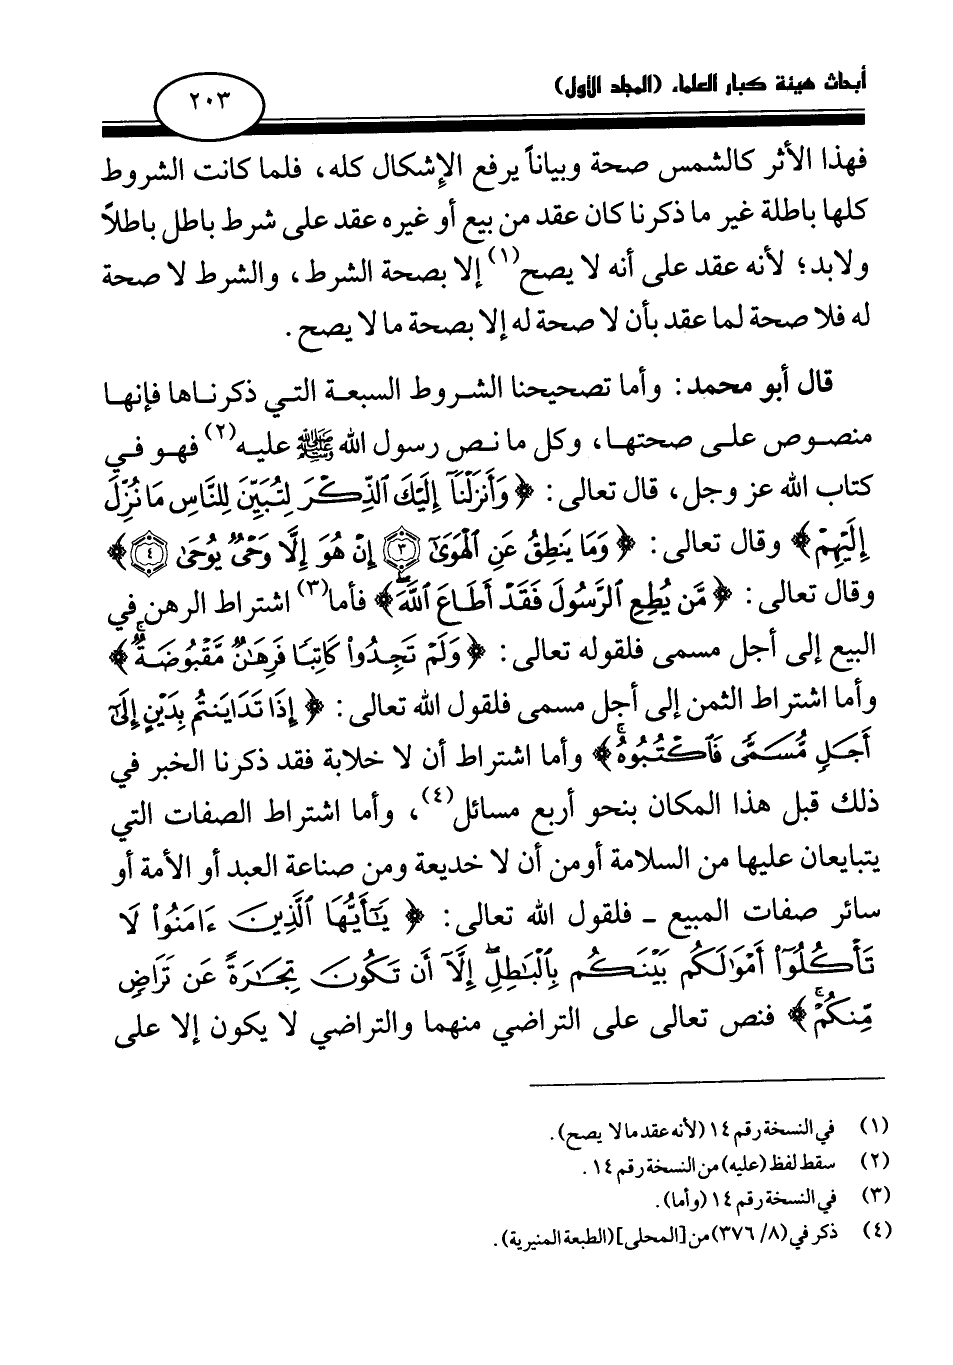 أبحاث هيئة كبار العلماء (المجلد الأول)
٢٠٣
فهذا الأثر كالشمس صحة وبياناً يرفع الإشكال كله، فلما كانت الشروط
كلها باطلة غير ما ذكرنا كان عقد من بيع أو غيره عقد على شرط باطل باطلاً
ولابد؛ لأنه عقد على أنه لا يصح(١) إلا بصحة الشرط، والشرط لا صحة
له فلا صحة لما عقد بأن لا صحة له إلا بصحة ما لا يصح.
قال أبو محمد: وأما تصحيحنا الشروط السبعة التي ذكرناها فإنها
منصوص على صحتها، وكل ما نص رسول الله ﷺ عليه(٢) فهو في
كتاب الله عز وجل، قال تعالى: ﴿وَأَنزَلْنَآ إِلَيْكَ ٱلذِّكْرَ لِتُبَيِّنَ لِلنَّاسِ مَا نُزِّلَ
إِلَيْهِمْ﴾ وقال تعالى: ﴿وَمَا يَنطِقُ عَنِ ٱلْهَوَىٰٓ ٣ إِنْ هُوَ إِلَّا وَحْىٌ يُوحَىٰ ٤﴾
وقال تعالى: ﴿مَّن يُطِعِ ٱلرَّسُولَ فَقَدْ أَطَاعَ ٱللَّهَۖ﴾ فأما(٣) اشتراط الرهن في
البيع إلى أجل مسمى فلقوله تعالى: ﴿وَلَمْ تَجِدُوا۟ كَاتِبًا فَرِهَٰنٌ مَّقْبُوضَةٌۖ﴾
وأما اشتراط الثمن إلى أجل مسمى فلقول الله تعالى: ﴿إِذَا تَدَايَنتُم بِدَيْنٍ إِلَىٰٓ
أَجَلٍ مُّسَمًّى فَٱكْتُبُوهُۚ﴾ وأما اشتراط أن لا خلابة فقد ذكرنا الخبر في
ذلك قبل هذا المكان بنحو أربع مسائل(٤)، وأما اشتراط الصفات التي
يتبايعان عليها من السلامة أومن أن لا خديعة ومن صناعة العبد أو الأمة أو
سائر صفات المبيع ـ فلقول الله تعالى: ﴿يَٰٓأَيُّهَا ٱلَّذِينَ ءَامَنُوا۟ لَا
تَأْكُلُوٓا۟ أَمْوَٰلَكُم بَيْنَكُم بِٱلْبَٰطِلِ إِلَّآ أَن تَكُونَ تِجَٰرَةً عَن تَرَاضٍ
مِّنكُمْۚ﴾ فنص تعالى على التراضي منهما والتراضي لا يكون إلا على
(١) في النسخة رقم ١٤ (لأنه عقد ما لا يصح).
(٢) سقط لفظ (عليه) من النسخة رقم ١٤.
(٣) في النسخة رقم ١٤ (وأما).
(٤) ذكر في (٨/ ٣٧٦) من [المحلى] (الطبعة المنيرية).